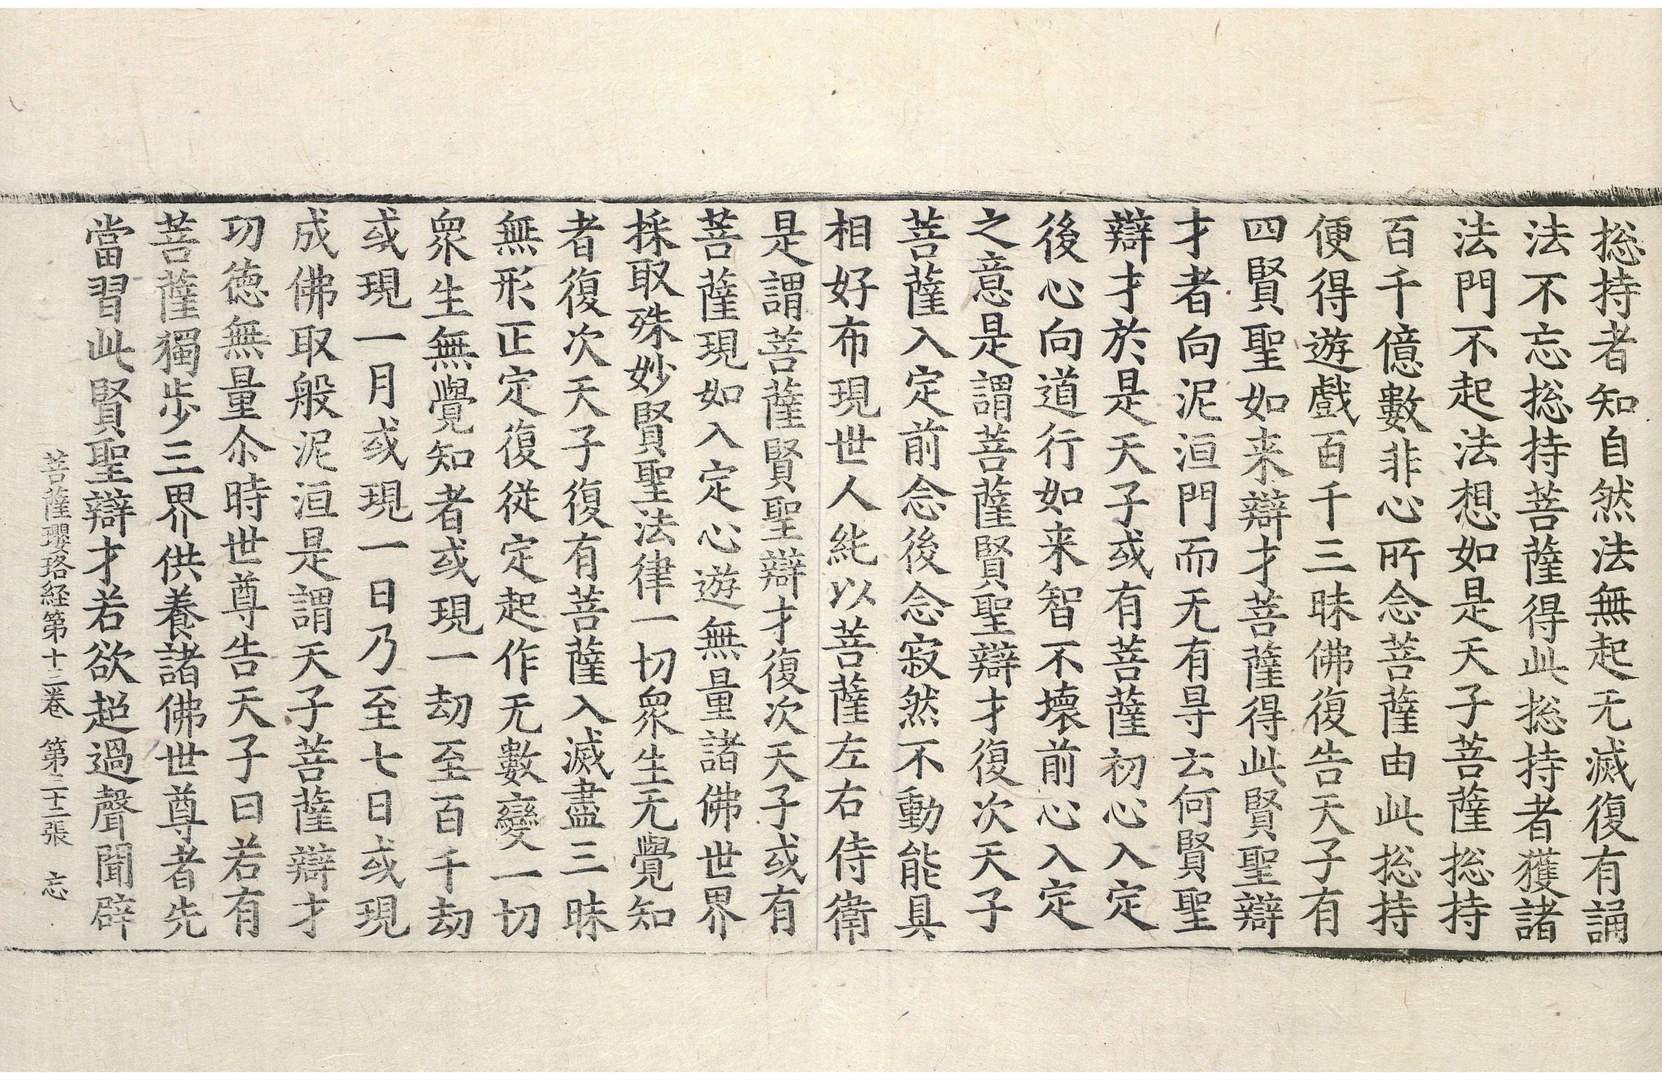 揔持者知自然法無起无滅復有誦
法不忘揔持菩薩得此揔持者獲諸
法門不起法想如是天子菩薩揔持
百千億數非心所念菩薩由此揔持
便得遊戲百千三昧佛復告天子有
四賢聖如来辯才菩薩得此賢聖辯
才者向泥洹門而无有㝵云何賢聖
辯才於是天子或有菩薩初心入定
後心向道行如来智不壞前心入定
之意是謂菩薩賢聖辯才復次天子
菩薩入定前念後念寂然不動能具
相好布現世人能以菩薩左右侍衛
是謂菩薩賢聖辯才復次天子或有
菩薩現如入定心遊無量諸佛世界
採取殊妙賢聖法律一切衆生无覺知
者復次天子復有菩薩入滅盡三昧
無形正定復從定起作无數變一切
衆生無覺知者或現一劫至百千劫
或現一月或現一日乃至七日或現
成佛取般泥洹是謂天子菩薩辯才
功徳無量尒時世尊告天子曰若有
菩薩獨步三界供養諸佛世尊者先
當習此賢聖辯才若欲超過聲聞辟
菩薩瓔珞経第十三卷 第二十二張 忘